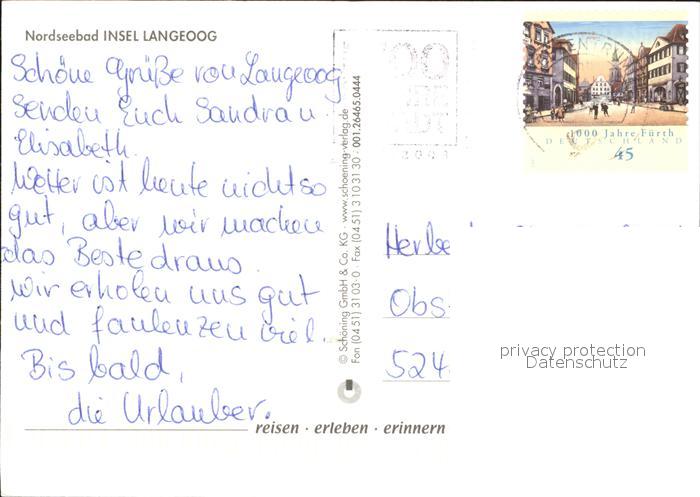 Nordseebad INSEL LANGEOOG
Schöne Grüße von Langeoog
senden Euch Sandra u.
Elisabeth.
Wetter ist heute nicht so
gut, aber wir machen
das Beste draus.
Wir erholen uns gut
und faulenzen viel.
Bis bald,
die Urlauber.
reisen · erleben · erinnern
© Schöning GmbH & Co. KG · www.schoening-verlag.de
Fon (04 51) 31 03-0 · Fax (04 51) 3 10 31 30 · 001.26465.0444
1000 Jahre Fürth
DEUTSCHLAND
45
Herbe
Obs
524
privacy protection
Datenschutz